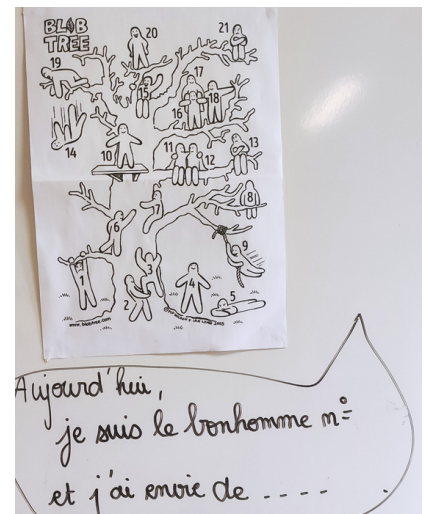 BLOB
TREE
20
21
19
15
17
16
18
14
10
11
12
13
6
7
8
9
1
3
2
4
5
www.blobtree.com
Aujourd'hui,
je suis le bonhomme n°
et j'ai envie de ----